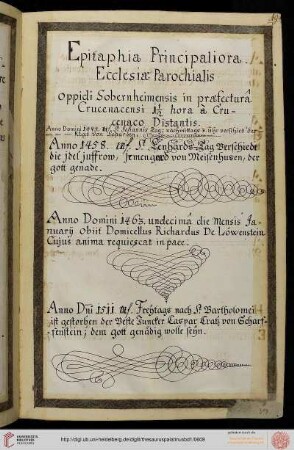 Epitaphia Principaliora
Ecclesiæ Parochialis
oppidi Sobernheimensis in præfecturâ
Crucenacensi 1½ hora à Cru-
cenaco Distantis.
Anno Domini
Anno 1458. uf. St. Lenhards-Tag Verschiedt
die jdel juffrow, Irmengard von Meisenhusen, der
gott genade.
Anno Domini 1463. undecimâ die Mensis Ja-
nuarij Obiit Domicellus Richardus De Löwenstein
Cujus anima requiescat in pace.
Anno Dni 1511 uf. Freytags nach St. Bartholomei
ist gestorben der Veste Juncker Caspar Cratz von Scharf-
fenstein; dem gott genädig wolle seyn.
http://digi.ub.uni-heidelberg.de/diglit/thesauruspalatinusbd1/0609